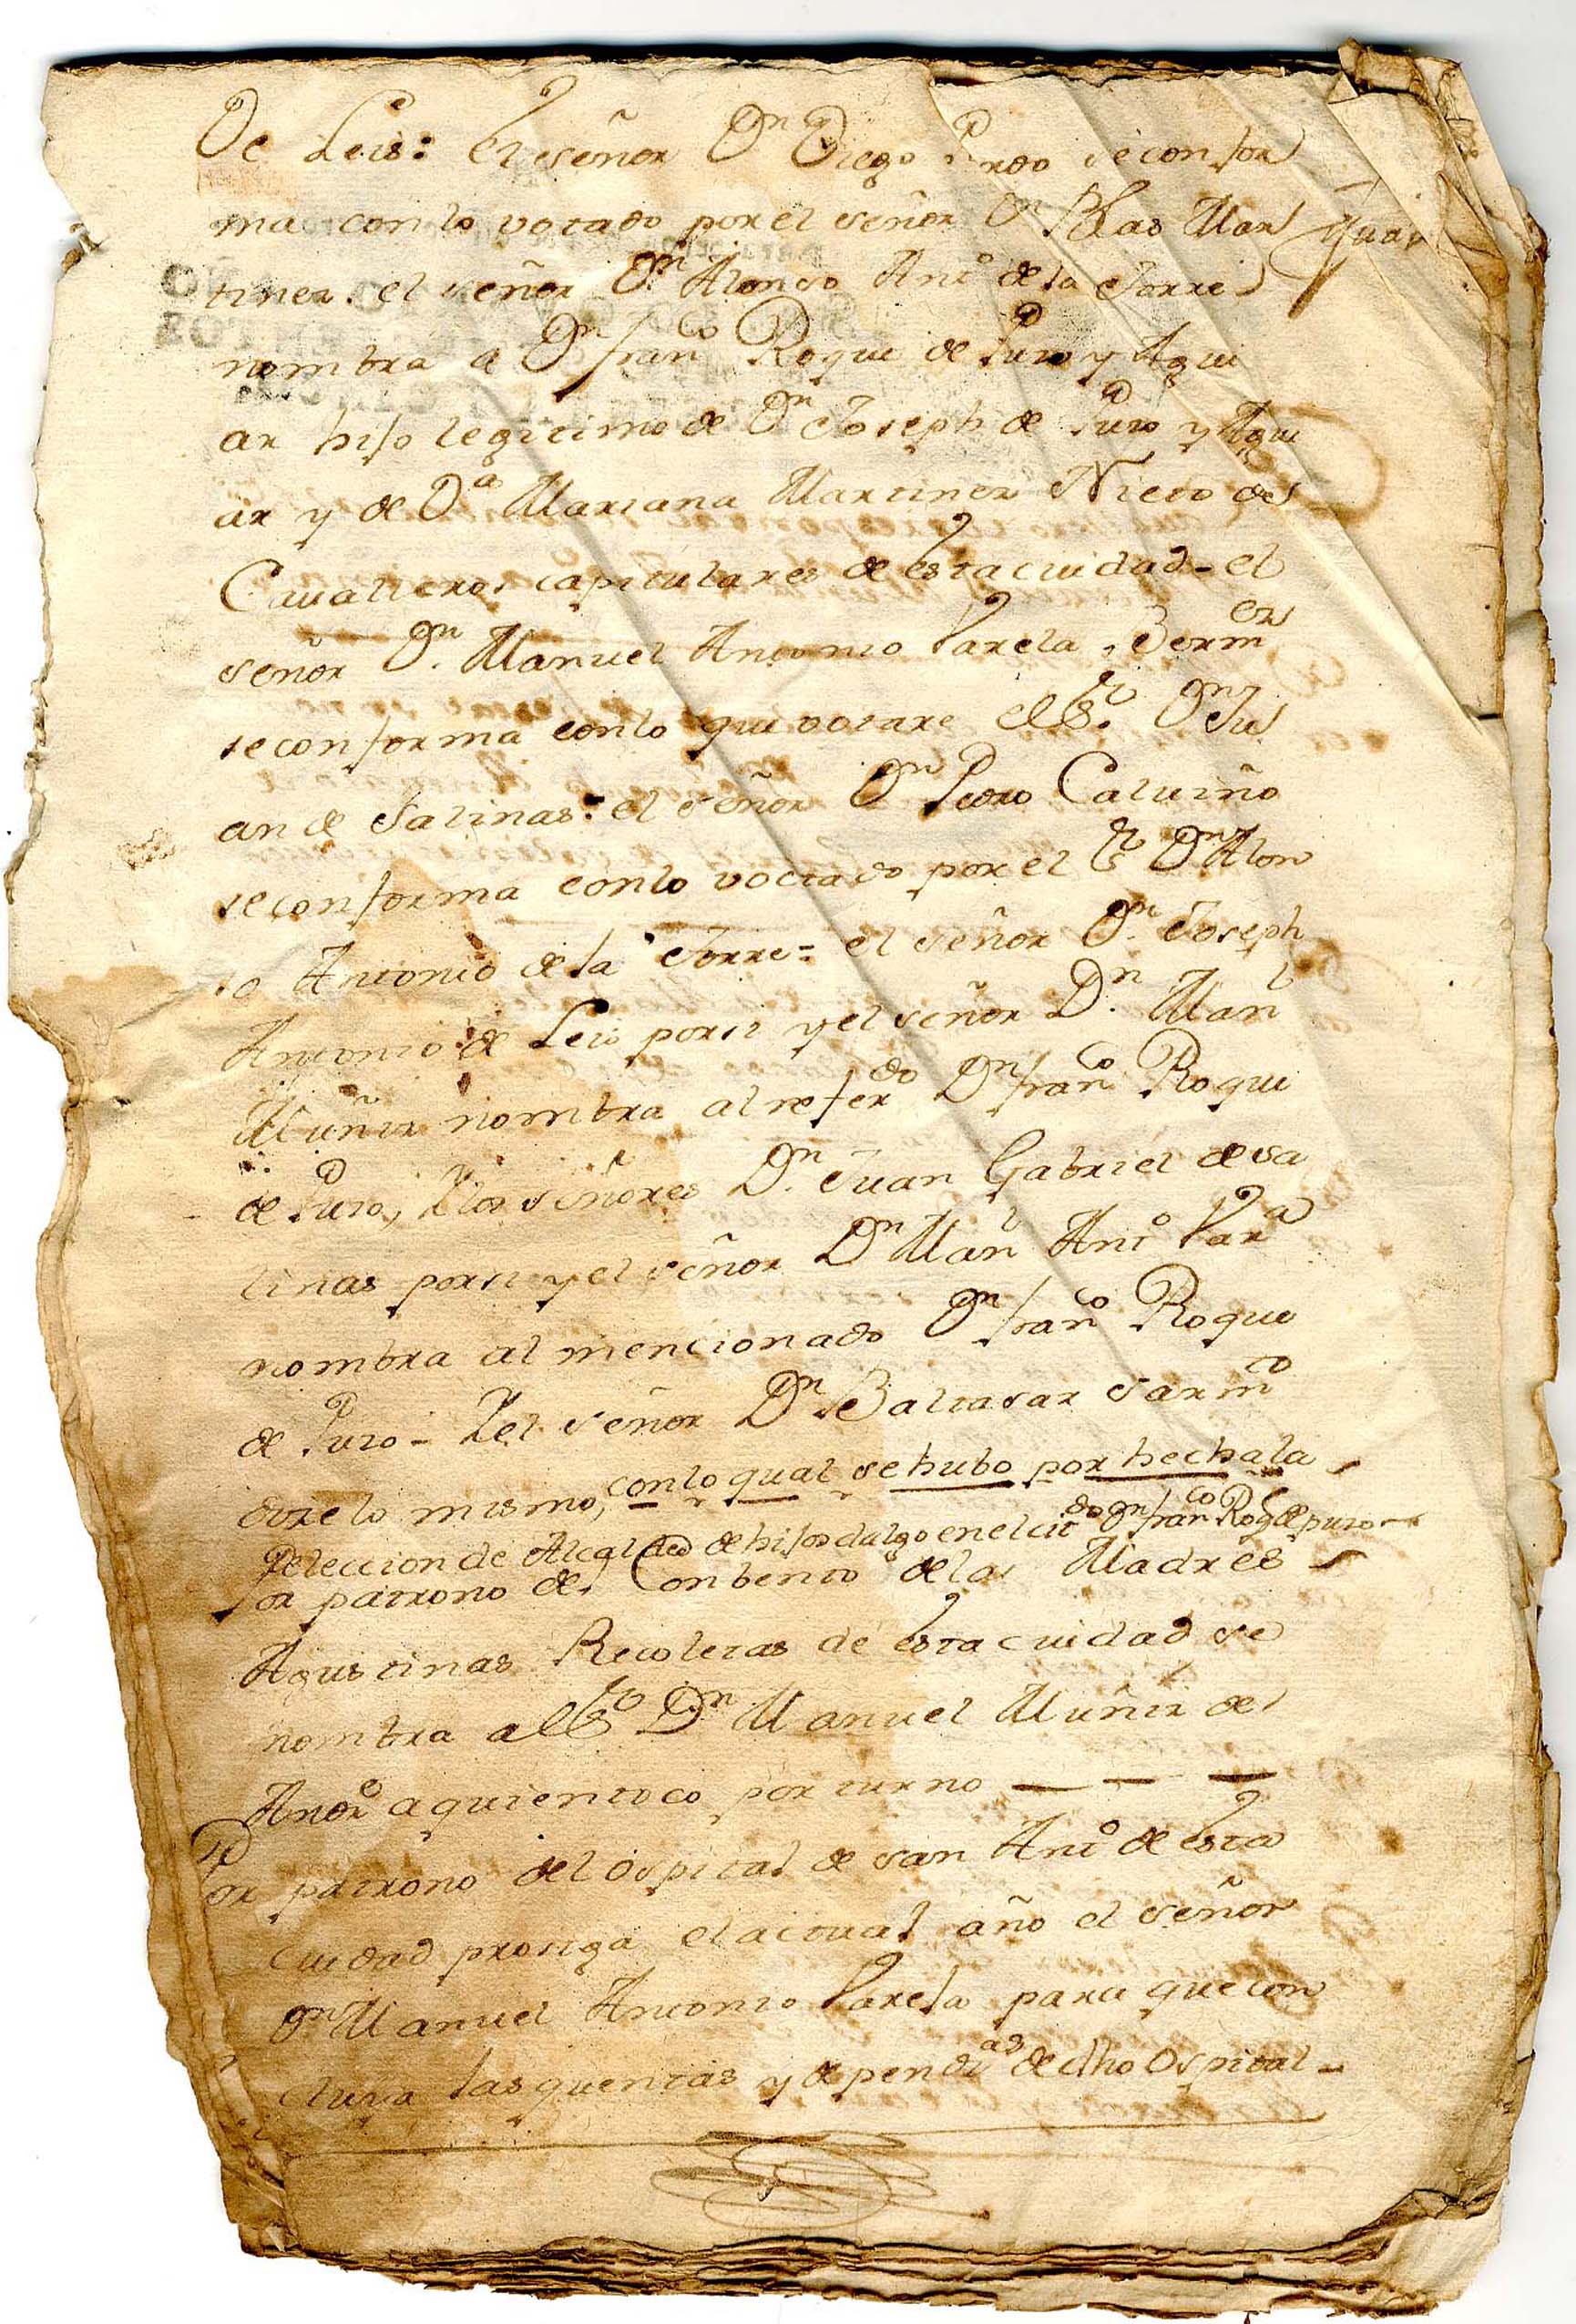 De Leis: el señor Dn Diego Pardo se confor
ma con lo votado por el señor Dn Blas Mar
tinez. el señor Dn Alonso Anto de la Torre
nombra a Dn Franco Roque de Puzo y Agui
ar hijo legitimo de Dn Joseph de Puzo y Agui
ar y de Da Mariana Martinez Nieto de
Cavalleros capitulares de esta ciudad - el
señor Dn Manuel Antonio Varela, Bermez
se conforma con lo que votare el Sr Dn Ju
an de Salinas: el señor Dn Pedro Calviño
se conforma con lo voctado por el Sr Dn Alon
so Antonio de la Torre = el señor Dn Joseph
Antonio de Leis por si y el señor Dn Manl
Muñiz nombra al referdo Dn Franco Roque
de Puzo, Y los señores Dn Juan Gabriel de Sa
linas por si y el señor Dn Manl Anto Vara
nombra al mencionado Dn Franco Roque
de Puzo - Y el señor Dn Baltasar Sarmto
dize lo mismo, con lo qual se hubo por hecha la
eleccion de Alcalde de hijosdalgo en el citdo Dn Franco Roqe de puzo
Por patrono del Conbento de las Madres
Agustinas Recoletas de esta ciudad se
nombra al Sr Dn Manuel Muñiz de
Andre a quien toco por turno — — —
Por patrono del ospital de san Anto de esta
ciudad prosiga el actual año el señor
Dn Manuel Antonio Varela para que con
cluya las quentas y dependas de dho Ospital -